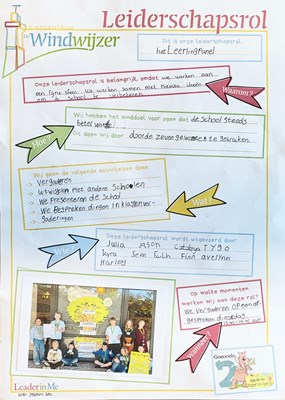 Leiderschapsrol
Windwijzer
Dit is onze leiderschapsrol:
het Leerlingpanel
Onze leiderschapsrol is belangrijk, omdat we werken aan
een fijne sfeer. We werken samen met nieuwe ideeën
om de school te verbeteren.
Waarom?
Wij hebben het einddoel voor ogen dat de school steeds
beter wordt
Dit doen wij door: door de zeven gewoontes te gebruiken
Hoe?
Wij gaan de volgende activiteiten doen:
Vergaderen
Uitwisselen met andere scholen
We Presenteren de School
We Bespreken dingen in klassenver-
gaderingen
Wat?
Deze leiderschapsrol wordt uitgevoerd door:
Julia Jason Tygo
Kyra Sem Faith Finn Avelynn
Harley
Wie?
Op welke momenten
werken wij aan deze rol?
We vergaderen op een af-
gesproken dinsdag
Wanneer?
Gewoonte
2
Leader in Me